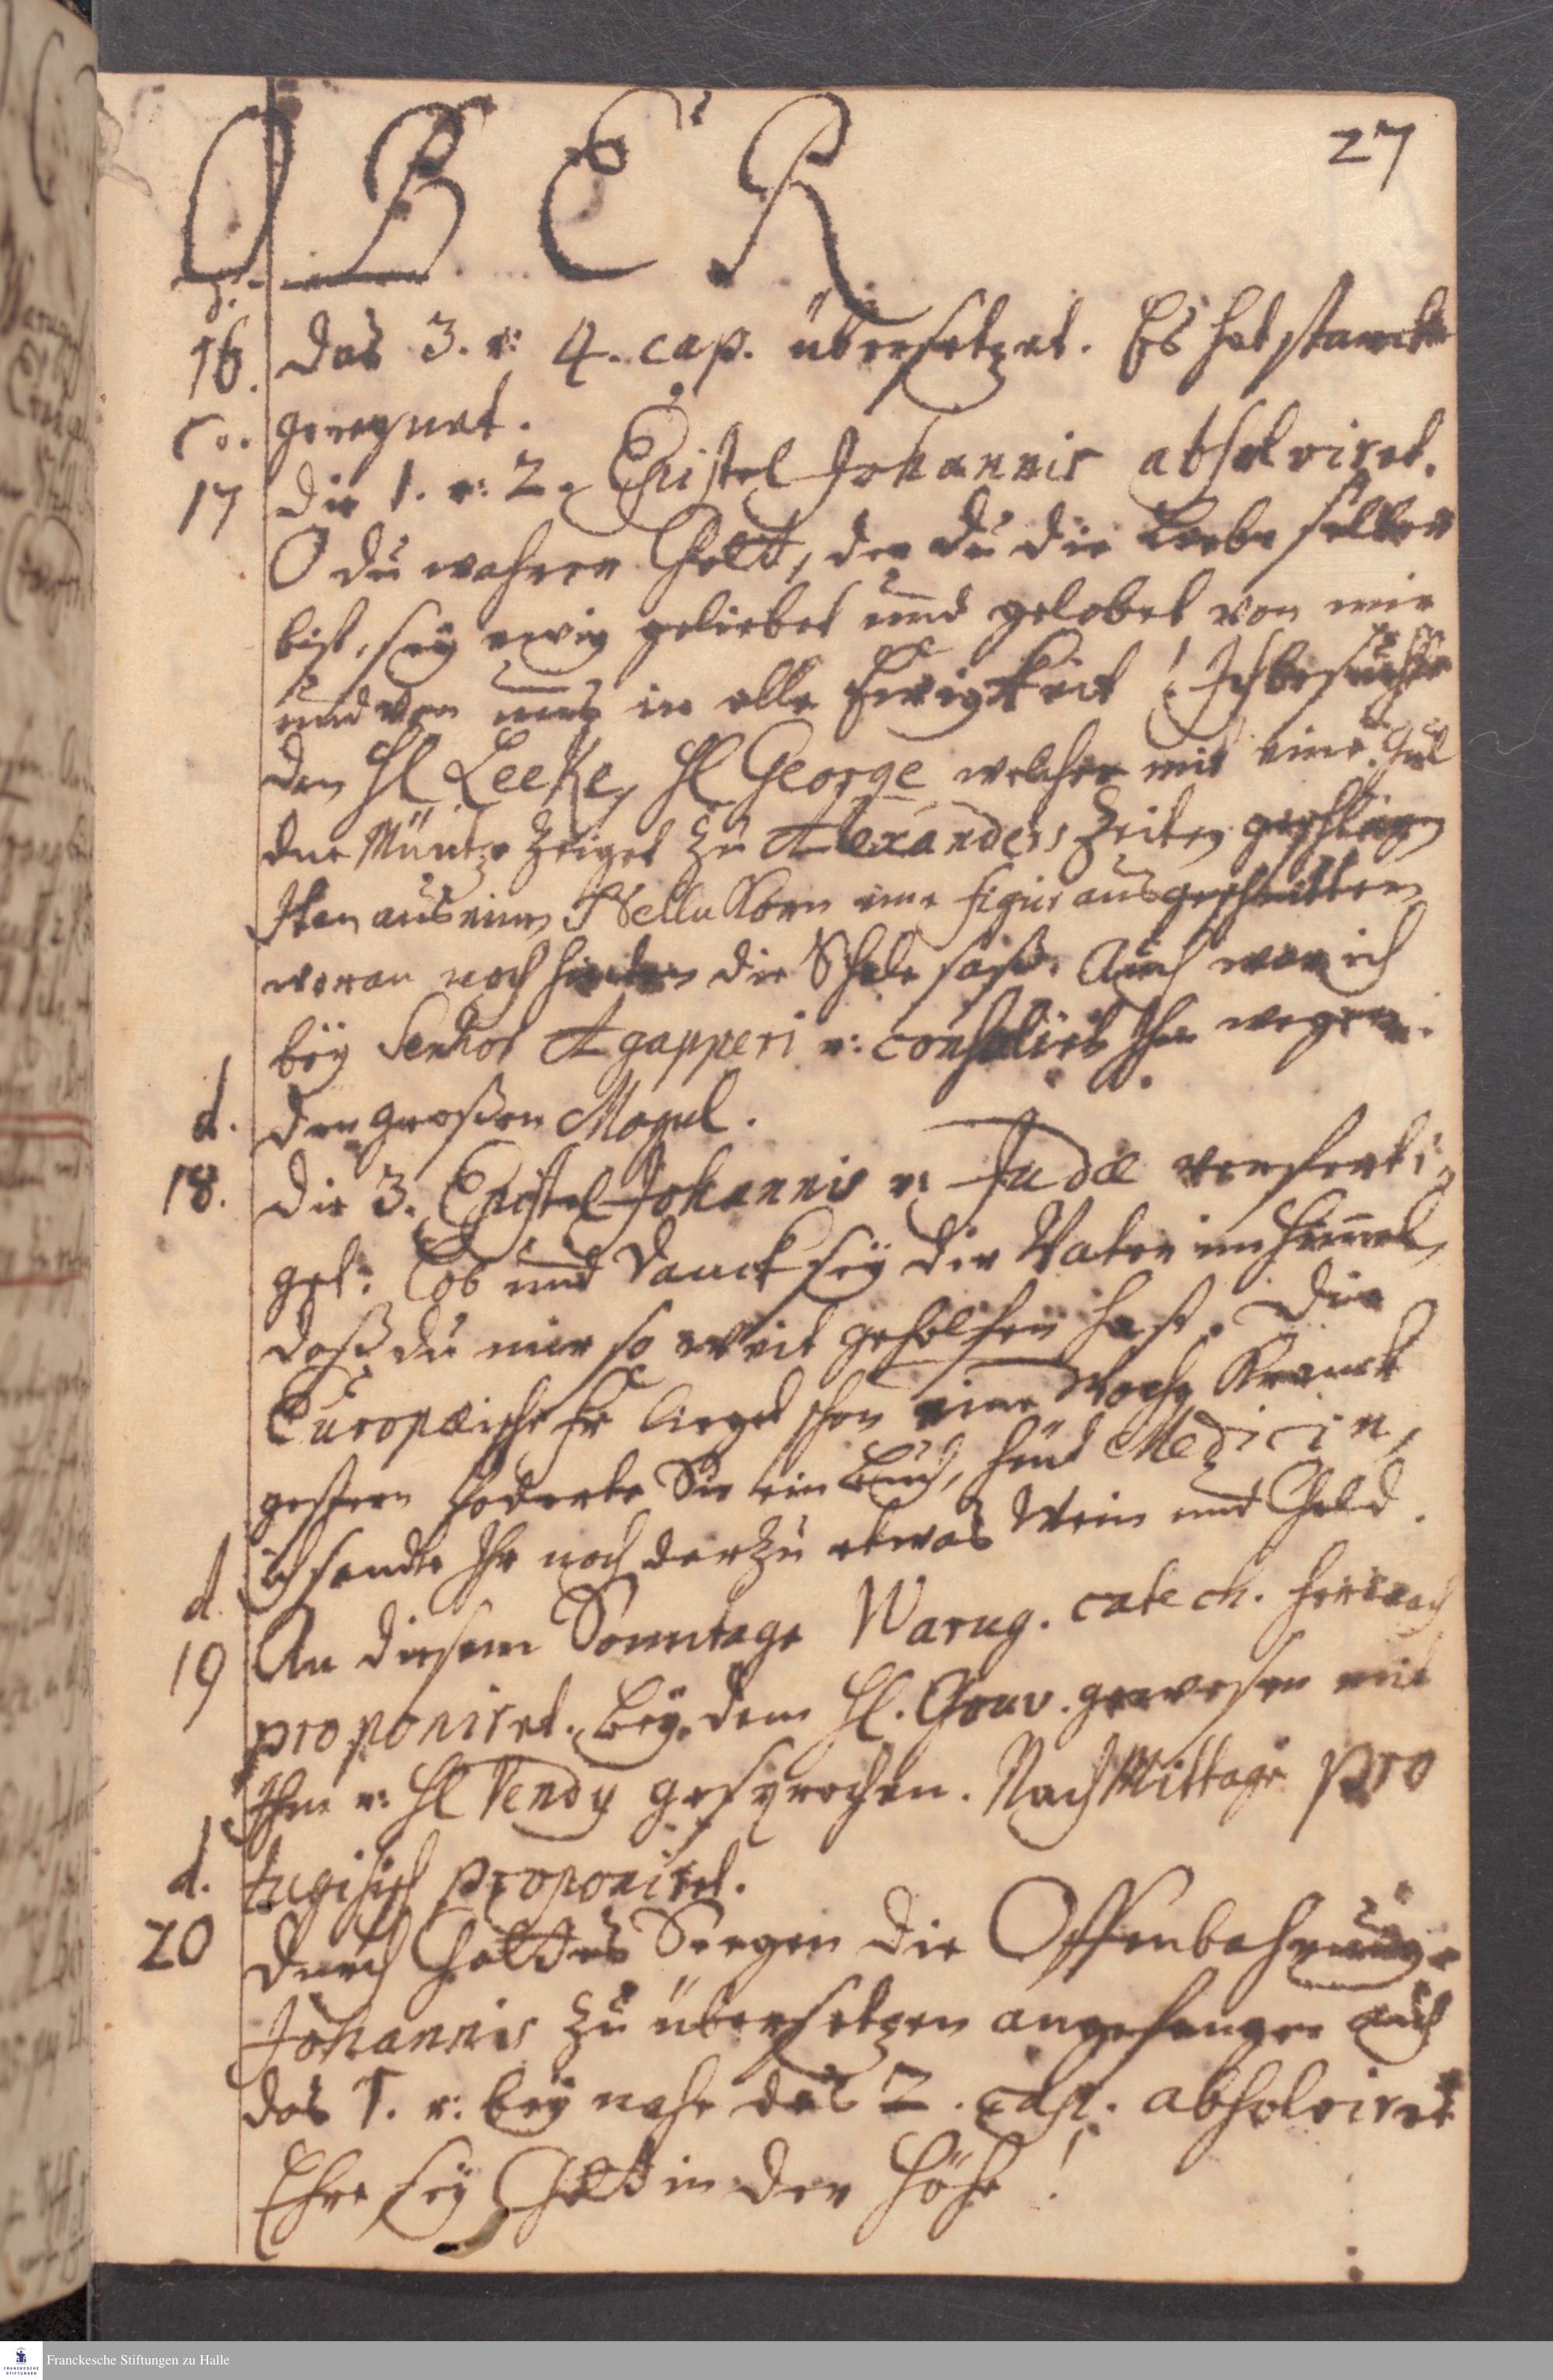 27
OBER
d.
16. das 3. u: 4. cap. übersetzet. Es hat starck
Co. geregnet.
17 die 1. u: 2. Epistel Johannis absolviret.
O du wahrer Gott, der du die Liebe selber
bist, sey ewig geliebet und gelobet von mir
und von uns in alle Ewigkeit! Ich besuchte
den Hl Leeke, Hl George welcher mir eine Gül
dne Müntze zeiget zu Alexanders Zeiten geschlagen
Item aus einen Nellu Korn eine figur ausgeschnitten
woran noch hinten die Schale saß. Auch war ich
bey Senhor Agapperi u: consulirt Ihn wegen
d. den großen Mogul.
18. die 3. Epistel Johannis u: Judæ verferti-
get. Lob und Danck sey dir Vater im Himmel,
daß du mir so weit geholfen hast. Die
Europæische Fr lieget schon eine Woche Kranck
gestern foderte Sie ein Buch, heut Medicin,
ich sandte Ihr noch darzu etwas Wein und Geld.
d.
19 An diesem Sonntage Warug. catech. hernach
proponiret. Bey dem Hl. Gouv. gewesen mit
Ihm u: Hl Vendy gesprochen. Nach Mittage Pro
d. tugisisch proponiret.
20 durch Gottes Seegen die Offenbahrung
Johannis zu übersetzen angefangen auch
das 1. u: bey nahe das 2. cap. absolviret
Ehre sey Gott in der Höhe!
Franckesche Stiftungen zu Halle
FRANCKESCHE
STIFTUNGEN